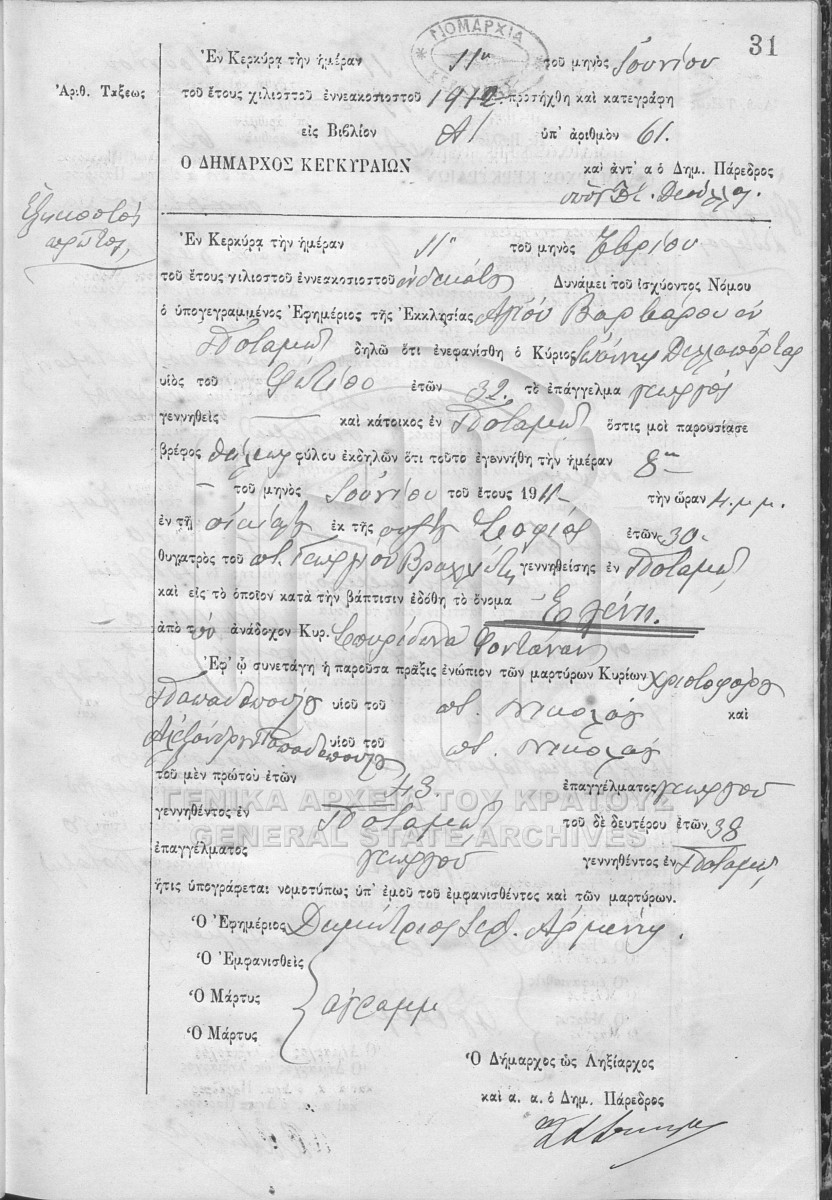 31
ΝΟΜΑΡΧΙΑ
Ἐν Κερκύρᾳ τὴν ἡμέραν 11ην τοῦ μηνὸς Ἰουνίου
Ἀριθ. Τάξεως
τοῦ ἔτους χιλιοστοῦ ἐννεακοσιοστοῦ 1912 προσήχθη καὶ κατεγράφη
εἰς Βιβλίον Α1 ὑπ' ἀριθμὸν 61.
Ο ΔΗΜΑΡΧΟΣ ΚΕΓΚΥΡΑΙΩΝ καὶ ἀντ' α ὁ Δημ. Πάρεδρος
Ἑξηκοστὸς
πρῶτος
Ἐν Κερκύρᾳ τὴν ἡμέραν 11ην τοῦ μηνὸς
τοῦ ἔτους χιλιοστοῦ ἐννεακοσιοστοῦ ἑνδεκάτου Δυνάμει τοῦ ἰσχύοντος Νόμου
ὁ ὑπογεγραμμένος Ἐφημέριος τῆς Ἐκκλησίας Ἁγίου Βαρβάρου ἐν
Ποταμῷ δηλῶ ὅτι ἐνεφανίσθη ὁ Κύριος Ἰωάννης Δελλαπόρτας
υἱὸς τοῦ ἐτῶν 32. τὸ ἐπάγγελμα γεωργὸς
γεννηθεὶς καὶ κάτοικος ἐν Ποταμῷ ὅστις μοὶ παρουσίασε
βρέφος θήλεος φύλου ἐκδηλῶν ὅτι τοῦτο ἐγεννήθη τὴν ἡμέραν 8ην
τοῦ μηνὸς Ἰουνίου τοῦ ἔτους 1911 τὴν ὥραν 4 μ.μ.
ἐν τῇ οἰκίᾳ ἐκ τῆς συζύγου Σοφίας ἐτῶν 30
θυγατρὸς τοῦ ποτ. Γεωργίου Βραχλιώτη γεννηθείσης ἐν Ποταμῷ
καὶ εἰς τὸ ὁποῖον κατὰ τὴν βάπτισιν ἐδόθη τὸ ὄνομα Ἑλένη.
ἀπὸ τοῦ ἀνάδοχον Κυρ. Σπυρίδωνα Φοντάναν
Ἐφ' ᾧ συνετάγη ἡ παροῦσα πρᾶξις ἐνώπιον τῶν μαρτύρων Κυρίων Χριστοφόρου
Παπαδοπούλου υἱοῦ τοῦ ποτ. Νικολάου καὶ
Ἀλεξάνδρου Παπαδοπούλου υἱοῦ τοῦ ποτ. Νικολάου
τοῦ μὲν πρώτου ἐτῶν 43. ἐπαγγέλματος γεωργοῦ
ΓΕΝΙΚΑ ΑΡΧΕΙΑ ΤΟΥ ΚΡΑΤΟΥΣ
γεννηθέντος ἐν Ποταμῷ τοῦ δὲ δευτέρου ἐτῶν 38
GENERAL STATE ARCHIVES
ἐπαγγέλματος γεωργοῦ γεννηθέντος ἐν Ποταμῷ
ἥτις ὑπογράφεται νομοτύπως ὑπ' ἐμοῦ τοῦ ἐμφανισθέντος καὶ τῶν μαρτύρων.
Ὁ Ἐφημέριος Δημήτριος Ἱερ. Ἀρμένης.
Ὁ Ἐμφανισθεὶς
Ὁ Μάρτυς ἀγραμμ
Ὁ Μάρτυς
Ὁ Δήμαρχος ὡς Ληξίαρχος
καὶ α. α. ὁ Δημ. Πάρεδρος